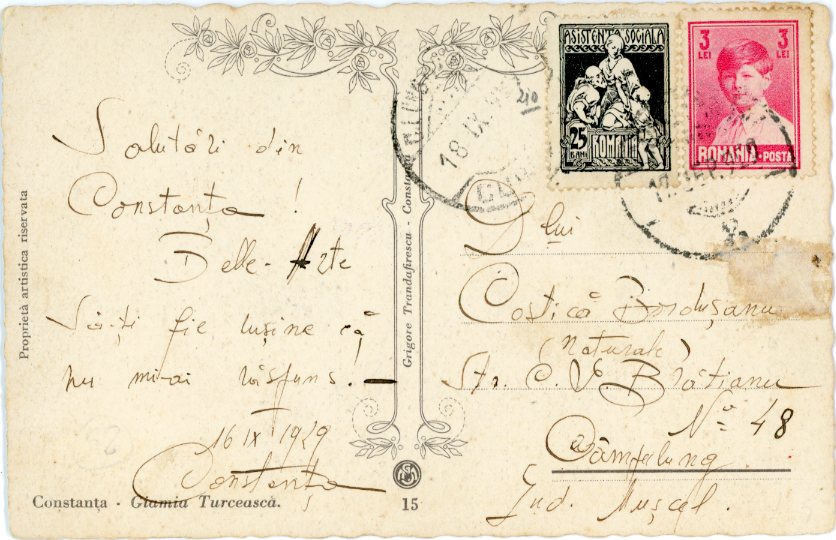 Salutări din
Constanța !
Belle-Arte
Să-ți fie rușine că
nu mi-ai răspuns! —
16 IX 1929
Constanța
Constanța - Glamia Turcească.
15
Proprietà artistica riservata
Grigore Trandafirescu - Constanța
18 IX
210
ASISTENȚA SOCIALA
25
BANI
ROMANIA
3 3
LEI LEI
ROMANIA-POSTA
D lui
Costică Bordușanu
(Naturale)
Str. C. I. Brătianu
No 48
Câmpulung
Jud. Mușcel.